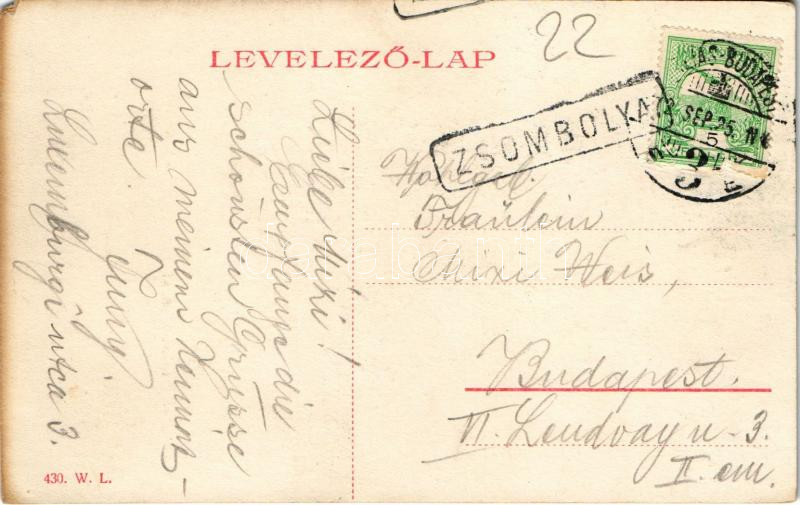 22
LEVELEZŐ-LAP
ZSOMBOLYA
SEP. 25.
5
Liebe Mizi!
Empfange die
schönsten Grüsse
aus meinem Heimats-
orte
Luxemburgi utca 3.
Wohlgeb.
Fräulein
Mizi Weis,
Budapest.
VI. Lendvay u. 3.
II. em.
430. W. L.